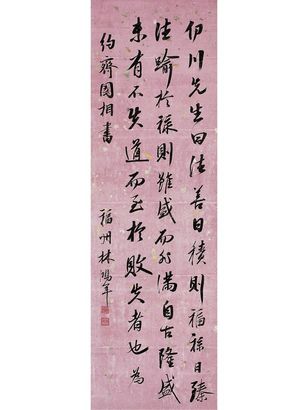 伊川先生曰德善日積則福祿日臻
德踰於祿則雖盛而非滿自古隆盛
未有不失道而至於敗失者也為
約齊國相書 福州林鴻年